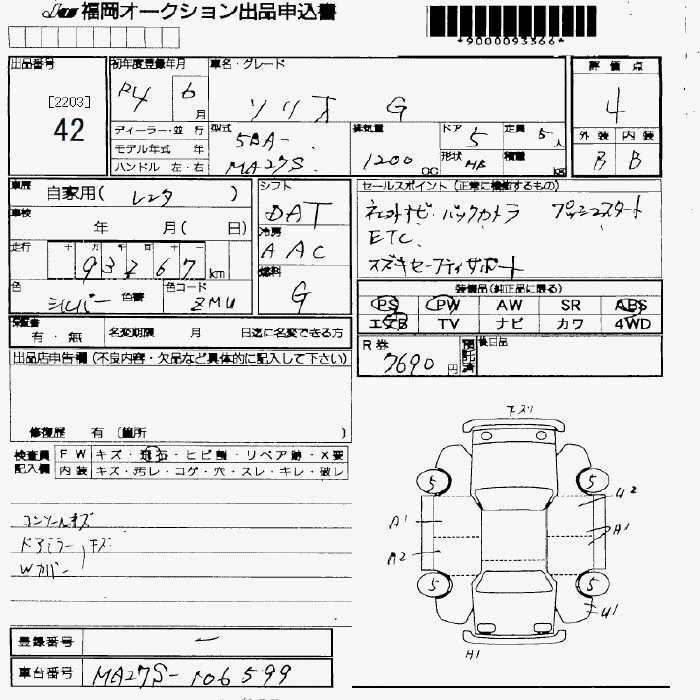 福岡オークション出品申込書
*9000093366*
出品番号 初年度登録年月 車名・グレード 評価点
[2203] R4 6月 ソリオ G 4
42 ディーラー・並行 型式 5BA- 排気量 ドア 5 定員 5人 外装 内装
モデル年式 年 MA27S 1200cc 形状 HB 積載 kg B B
ハンドル 左・右
車歴 自家用(レンタ) シフト DAT セールスポイント(正常に機能するもの)
車検 年 月(日) 冷房 AAC ネットナビ・バックカメラ プッシュスタート
走行 十万千百十一 ETC.
93267km 燃料 G スズキセーフティサポート
色 シルバー 色替 色コード ZMU 装備品(純正品に限る)
PS PW AW SR ABS
保証書 有・無 名変期限 月 日迄に名変できる方 エアB TV ナビ カワ 4WD
出品店申告欄(不良内容・欠品など具体的に記入して下さい) R券 7690円 預託済 後日品
修復歴 有〔箇所 〕
検査員記入欄 FW キズ・飛石・ヒビ割・リペア跡・X要
内装 キズ・汚レ・コゲ・穴・スレ・キレ・破レ
コンソールキズ
ドアミラーキズ
Wカバー
エスリ
5 5
A1 U2
A1
A2
5 5
U1
A1
登録番号 ー
車台番号 MA27S-106599